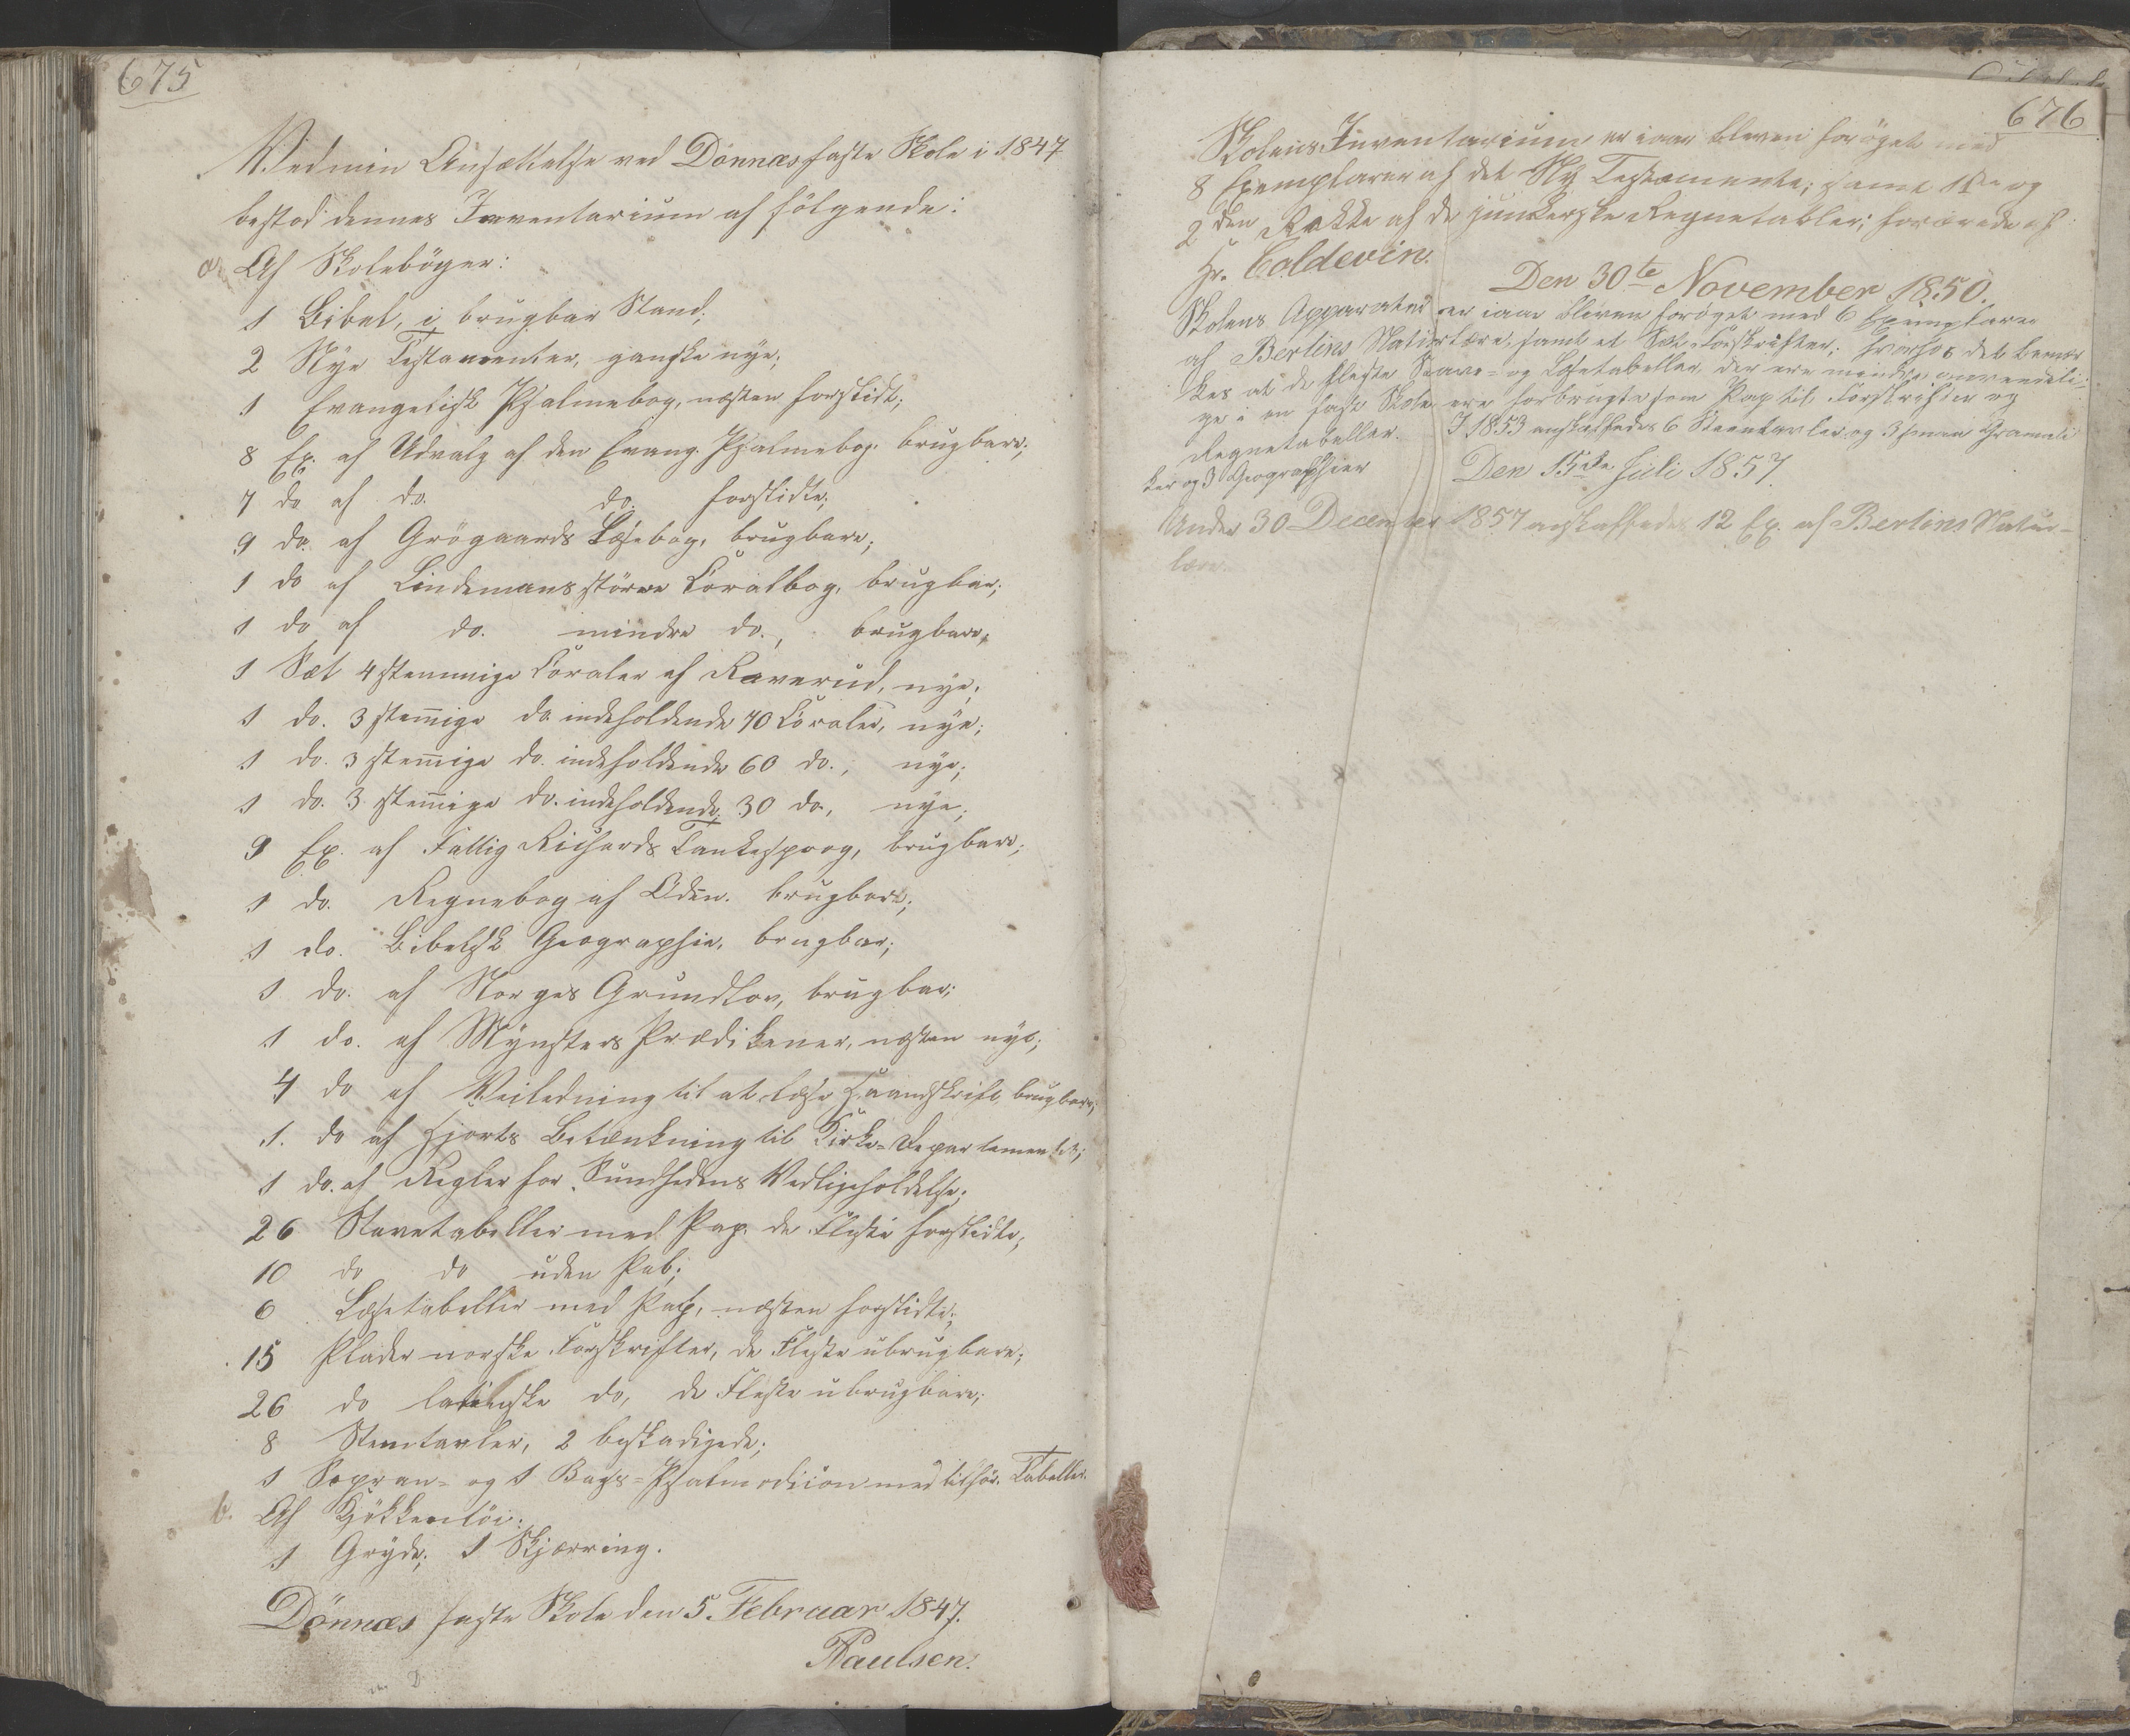 675
Ved min Ansættelse ved Dönnæs faste Skole i 1847
bestod dennes Inventarium af følgende:
a. Af Skolebøger:
1 Bibel, i brugbar Stand;
2 Nye Testamenter, ganske nye;
1 Evangelisk Psalmebog, næsten forslidt;
8 Ex. af Udvalg af den Evang. Psalmebog. brugbare;
7 do af do. do. forslidte;
9 do. af Grögaards Læsebog, brugbare;
1 do af Lindemans större Coralbog, brugbar;
1 do af do. mindre do., brugbare,
1 Sæt 4stemmige Coraler af Roverud, nye;
1 do. 3 stem̅ige do indeholdende 70 Coraler, nye;
1 do. 3 stem̅ige do. indeholdende 60 do., nye;
1 do. 3 stem̅ige do. indeholdende 30 do, nye;
9 Ex. af Fattig Richards Tankesprog, brugbare;
1 do. Regnebog af Odin. brugbar;
1 do. Bibelsk Geographie, brugbar;
1 do. af Norges Grundlov, brugbar;
1 do. af Mynsters Prædikener, næsten nye;
4 do af Veiledning til at læse Haandskrift, brugbare;
1. do af Hjorts Betænkning til Kirke-Departementet;
1 do. af Regler for Sundhedens Vedligeholdelse;
26 Stavetabeller med Pap. de Fleste forslidte;
10 do do uden Pab;
6 Læsetabeller med Pap, næsten forslidte;
15 Plader norske Forskrifter, de Fleste ubrugbare;
26 do latinske do, de Fleste ubrugbare;
8 Stentavler, 2 beskadigede;
1 Sopran- og 1 Bass-Psalmodicon med tilhör. Tabeller.
b. Af Kjökkentöi:
1 Gryde; 1 Skjærring.
Dönnæs faste Skole den 5. Februar 1847.
Paulsen.
676
Skolens Inventarium er iaar bleven forøget med
8 Exemplarer af det Ny Testamente; samt 1ste og
2den Rakke af de junkerske Regnetabler; forærede af
Hr. Coldevin.
Den 30te November 1850.
Skolens Apparater er iaar bleven forøget med 6 Exemplarer
af Berlins Naturlære, samt et Sæt Forskrifter; hvorhos det bemær
kes at de fleste Stave- og Læsetabeller, der ere mindre anvendeli-
ge i en fast Skole ere forbrugte som Pap til Forskrifter og
Regnetabeller. I 1853 anskaffedes 6 Steentavler og 3 smaa Gramati
ker og 3 Geographier
Den 15de Juli 1857.
Under 30 December 1857 anskaffedes 12 Ex. af Berlins Natur-
lære.